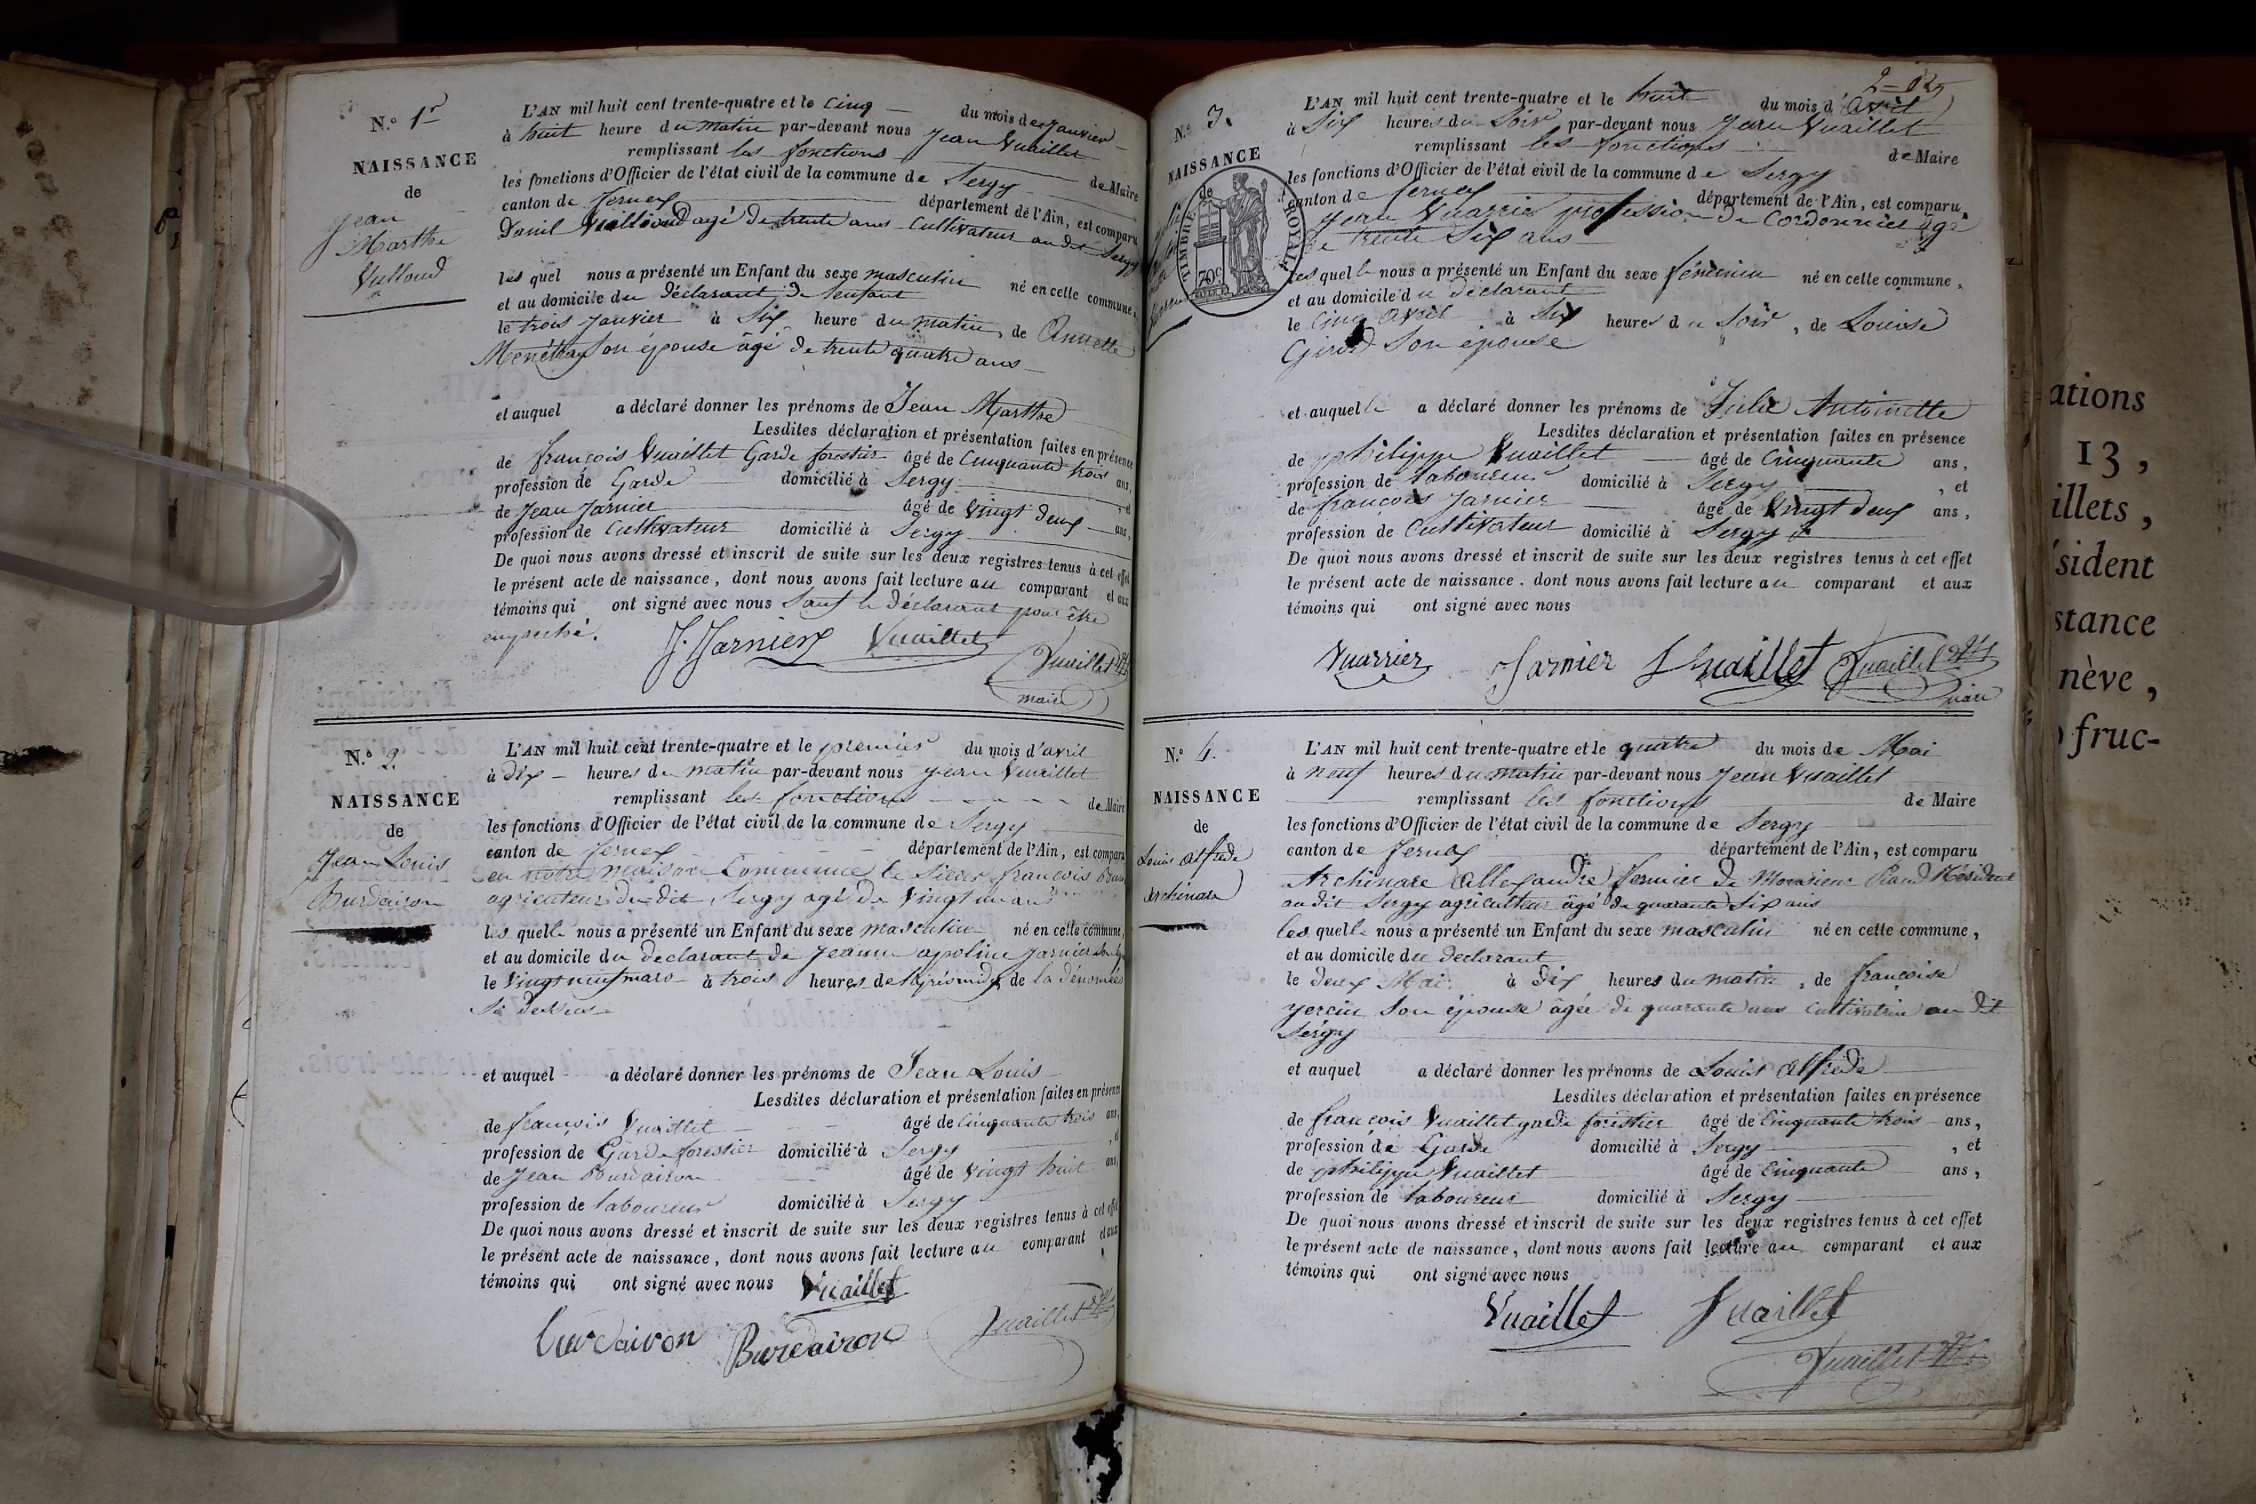 N.o 1r
NAISSANCE
de
Jean
Marthe
Vulloud
L'AN mil huit cent trente-quatre et le cinq du mois de Janvier
à huit heure du matin par-devant nous Jean Vuaillet
remplissant les fonctions de Maire
les fonctions d'Officier de l'état civil de la commune de Sergy
canton de Fernex département de l'Ain, est comparu
Daniel agé de trente ans Cultivateur au dit Sergy
les quel nous a présenté un Enfant du sexe masculin né en celle commune,
et au domicile du déclarant de l'enfant
le trois Janvier à Six heure du matin, de Annette
son epouse âgé de trente quatre ans
et auquel a déclaré donner les prénoms de Jean Marthe
Lesdites déclaration et présentation faites en présence
de françois Vuaillet Garde forestier âgé de Cinquante trois ans,
profession de Garde domicilié à Sergy, et
de Jean Jarnier âgé de Vingt deux ans,
profession de Cultivateur domicilié à Sergy
De quoi nous avons dressé et inscrit de suite sur les deux registres tenus à cet effet
le présent acte de naissance, dont nous avons fait lecture au comparant et aux
témoins qui ont signé avec nous Sauf le déclarant pour être
empeché.
J. Jarnier Vuaillet Vuaillet
maire
N.o 2.
NAISSANCE
de
Jean Louis
Burdairon
L'AN mil huit cent trente-quatre et le premier du mois d'avril
à dix heures du matin par-devant nous Jean Vuaillet
remplissant les fonctions de Maire
les fonctions d'Officier de l'état civil de la commune de Sergy
canton de Fernex département de l'Ain, est comparu
en notre maison Commune le Sieur françois
agriculteur du dit Sergy agé de Vingt un ans
les quelle nous a présenté un Enfant du sexe masculin né en celle commune,
et au domicile du declarant de Jeanne apoline Jarnier
le Vingt neuf mars à trois heures de l'après midy, de la dénomée
Si dessus
et auquel a déclaré donner les prénoms de Jean Louis
Lesdites déclaration et présentation faites en présence
de françois Vuaillet âgé de Cinquante trois ans,
profession de Garde forestier domicilié à Sergy, et
de Jean Burdairon âgé de Vingt huit ans,
profession de laboureur domicilié à Sergy
De quoi nous avons dressé et inscrit de suite sur les deux registres tenus à cet effet
le présent acte de naissance, dont nous avons fait lecture au comparant et aux
témoins qui ont signé avec nous Vuaillet
Burdairon Burdairon Vuaillet
N.o 3.
NAISSANCE
de
TIMBRE ROYAL
70c
L'AN mil huit cent trente-quatre et le huit du mois d'Avril
à Six heures du Soir par-devant nous Jean Vuaillet
remplissant les fonctions de Maire
les fonctions d'Officier de l'état civil de la commune de Sergy
canton de fernex département de l'Ain, est comparu,
Jean Vuarrier profession de Cordonnier âgé
de trente Six ans
les quelle nous a présenté un Enfant du sexe féminin né en celle commune,
et au domicile du déclarant
le Cinq Avril à Six heures du Soir, de Louise
Girod Son épouse
et auquelle a déclaré donner les prénoms de Julie Antoinette
Lesdites déclaration et présentation faites en présence
de philippe Vuaillet âgé de Cinquante ans,
profession de laboureur domicilié à Sergy, et
de françois Jarnier âgé de Vingt deux ans,
profession de Cultivateur domicilié à Sergy
De quoi nous avons dressé et inscrit de suite sur les deux registres tenus à cet effet
le présent acte de naissance, dont nous avons fait lecture au comparant et aux
témoins qui ont signé avec nous
Vuarrier Jarnier Vuaillet Vuaillet
Maire
N.o 4.
NAISSANCE
de
Louis Alfrede
Archinare
L'AN mil huit cent trente-quatre et le quatre du mois de Mai
à neuf heures du matin par-devant nous Jean Vuaillet
remplissant les fonctions de Maire
les fonctions d'Officier de l'état civil de la commune de Sergy
canton de fernex département de l'Ain, est comparu
Archinare Allexandre fermier de Monsieur Résident
au dit Sergy agriculteur âgé de quarante Six ans
les quelle nous a présenté un Enfant du sexe masculin né en celle commune,
et au domicile du declarant
le deux Mai à dix heures du matin, de françoise
yercin Son épouse âgée de quarante ans Cultivatrice au dit
Sergy
et auquel a déclaré donner les prénoms de Louis Alfrede
Lesdites déclaration et présentation faites en présence
de françois Vuaillet garde forestier âgé de Cinquante trois ans,
profession de Garde domicilié à Sergy, et
de philippe Vuaillet âgé de Cinquante ans,
profession de laboureur domicilié à Sergy
De quoi nous avons dressé et inscrit de suite sur les deux registres tenus à cet effet
le présent acte de naissance, dont nous avons fait lecture au comparant et aux
témoins qui ont signé avec nous
Vuaillet Vuaillet
Vuaillet
ations
13,
illets,
sident
stance
nève,
fruc-